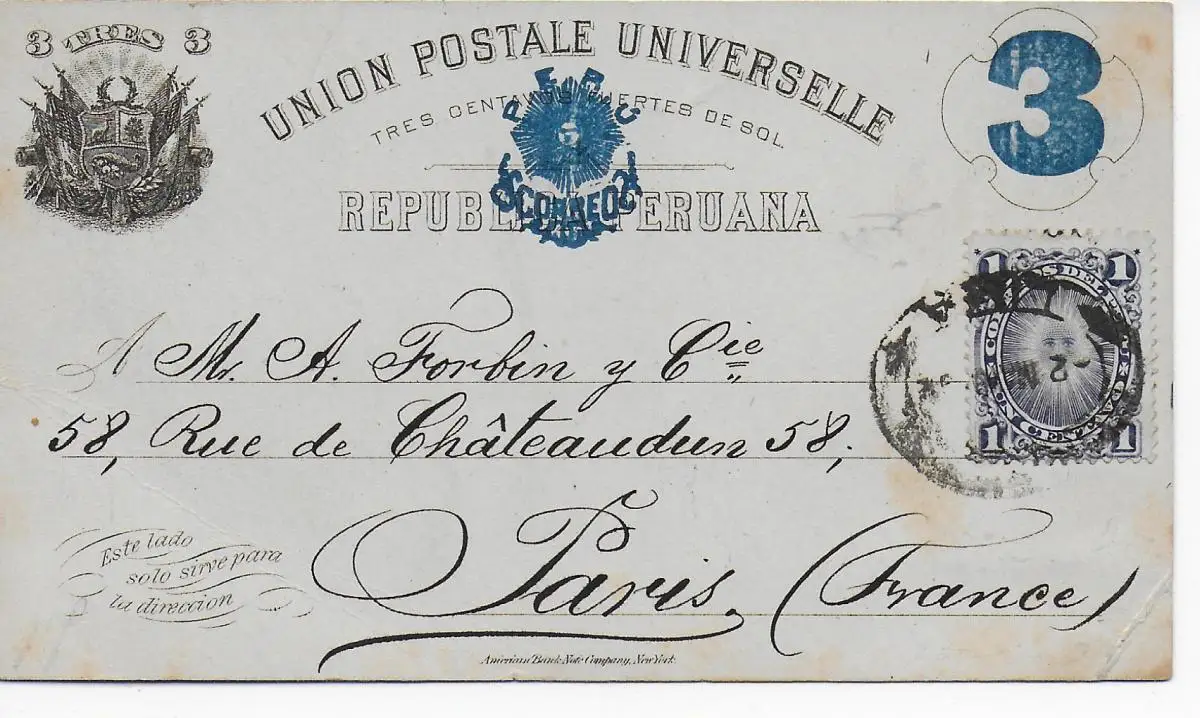 3 TRES 3
UNION POSTALE UNIVERSELLE
3
PERU
TRES CENTAVOS FUERTES DE SOL
REPUBLICA PERUANA
CORREOS
1 1
CORREOS DEL PERU
UN CENTAVO
1 1
A Mr. A. Forbin y Cie
58, Rue de Châteaudun 58,
Paris, (France)
Este lado
solo sirve para
la direccion
American Bank Note Company, New York.